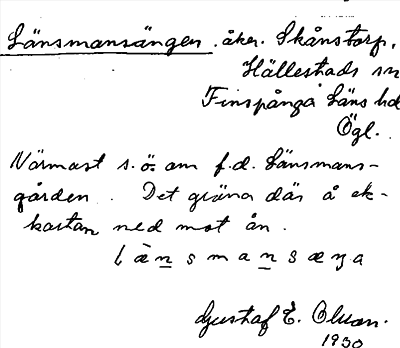 Länsmansängen. åker. Skånstorp,
Hällestads sn
Finspånga Läns hd
Ögl.
Närmast s.ö. om f.d. Länsmans-
gården. Det gräva där å ek-
backan ned mot ån.
l à n s m a n s æ ŋ a
Gustaf E. Olson.
1930